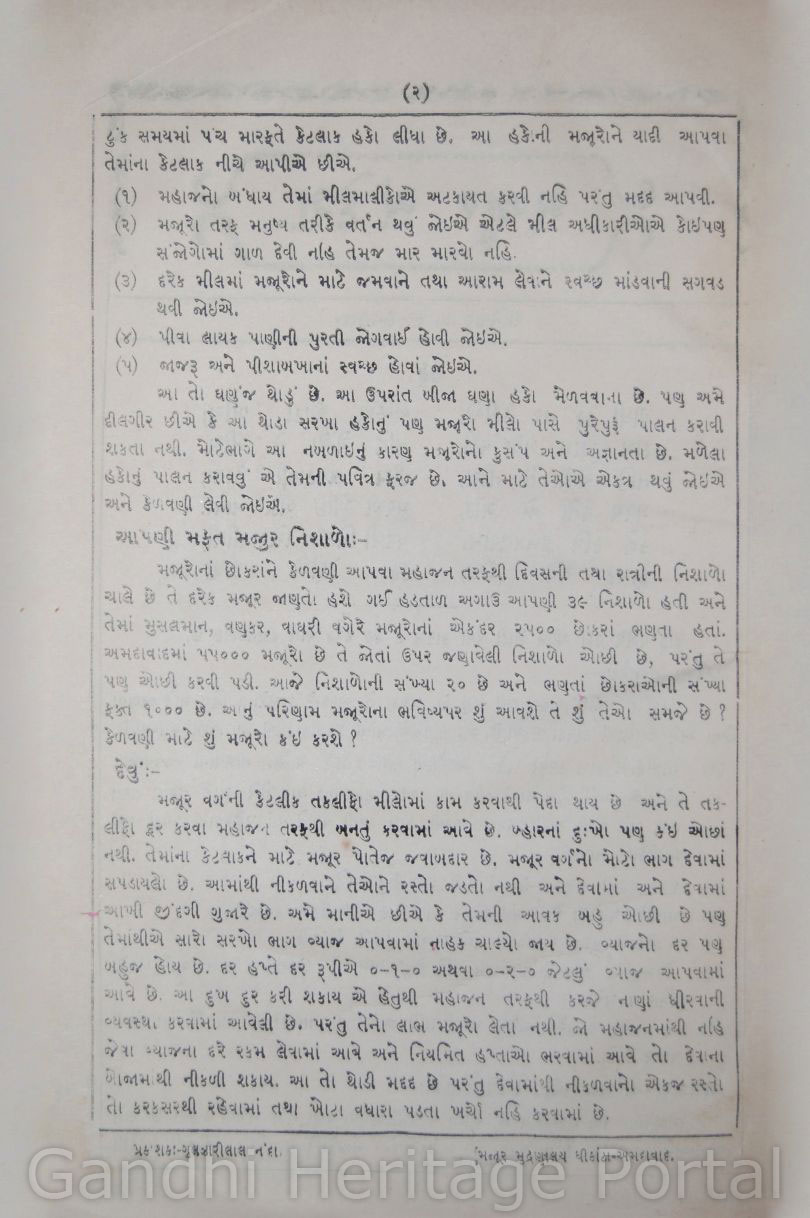 (૨)
ટુંક સમયમાં પંચ મારફતે કેટલાક હકો લીધા છે. આ હકોની મજૂરોને યાદી આપવા
તેમાંના કેટલાક નીચે આપીએ છીએ.
(૧) મહાજનો બંધાય તેમાં મીલમાલીકોએ અટકાયત કરવી નહિ પરંતુ મદદ આપવી.
(૨) મજૂરો તરફ મનુષ્ય તરીકે વર્તન થવું જોઇએ એટલે મીલ અધીકારીઓએ કોઇપણ
સંજોગોમાં ગાળ દેવી નહિ તેમજ માર મારવો નહિ.
(૩) દરેક મીલમાં મજૂરોને માટે જમવાને તથા આરામ લેવાને સ્વચ્છ માંડવાની સગવડ
થવી જોઇએ.
(૪) પીવા લાયક પાણીની પુરતી જોગવાઈ હોવી જોઇએ.
(૫) જાજરૂ અને પીશાબખાનાં સ્વચ્છ હોવાં જોઇએ.
આ તો ઘણુંજ થોડું છે. આ ઉપરાંત બીજા ઘણા હકો મેળવવાના છે. પણ અમે
દીલગીર છીએ કે આ થોડા સરખા હકોનું પણ મજૂરો મીલો પાસે પુરેપુરૂં પાલન કરાવી
શકતા નથી. મોટેભાગે આ નબળાઇનું કારણ મજૂરોનો કુસંપ અને અજ્ઞાનતા છે. મળેલા
હકોનું પાલન કરાવવું એ તેમની પવિત્ર ફરજ છે. આને માટે તેઓએ એકત્ર થવું જોઇએ
અને કેળવણી લેવી જોઇએ.
આપણી મફત મજુર નિશાળોઃ-
મજૂરોનાં છોકરાંને કેળવણી આપવા મહાજન તરફથી દિવસની તથા રાત્રીની નિશાળો
ચાલે છે તે દરેક મજૂર જાણતો હશે ગઈ હડતાળ અગાઉ આપણી ૩૯ નિશાળો હતી અને
તેમાં મુસલમાન, વણકર, વાઘરી વગેરે મજૂરોનાં એકંદર ૨૫૦૦ છોકરાં ભણતા હતાં.
અમદાવાદમાં ૫૫૦૦૦ મજૂરો છે તે જોતાં ઉપર જણાવેલી નિશાળો ઓછી છે, પરંતુ તે
પણ ઓછી કરવી પડી. આજે નિશાળોની સંખ્યા ૨૦ છે અને ભણતાં છોકરાઓની સંખ્યા
ફક્ત ૧૦૦૦ છે. આનું પરિણામ મજૂરોના ભવિષ્યપર શું આવશે તે શું તેઓ સમજે છે?
કેળવણી માટે શું મજૂરો કંઇ કરશે?
દેવુંઃ-
મજૂર વર્ગની કેટલીક તકલીફો મીલોમાં કામ કરવાથી પેદા થાય છે અને તે તક-
લીફો દૂર કરવા મહાજન તરફથી બનતું કરવામાં આવે છે. બહારનાં દુઃખો પણ કંઇ ઓછાં
નથી. તેમાંના કેટલાકને માટે મજૂર પોતેજ જવાબદાર છે. મજૂર વર્ગનો મોટો ભાગ દેવામાં
સપડાયલો છે. આમાંથી નીકળવાને તેઓને રસ્તો જડતો નથી અને દેવામાં અને દેવામાં
આખી જીંદગી ગુજારે છે. અમે માનીએ છીએ કે તેમની આવક બહુ ઓછી છે પણ
તેમાંથીએ સારો સરખો ભાગ વ્યાજ આપવામાં નાહક ચાલ્યો જાય છે. વ્યાજનો દર પણ
બહુજ હોય છે. દર હપ્તે દર રૂપીએ ૦-૧-૦ અથવા ૦-૨-૦ જેટલું વ્યાજ આપવામાં
આવે છે. આ દુખ દુર કરી શકાય એ હેતુથી મહાજન તરફથી કરજે નાણાં ધીરવાની
વ્યવસ્થા કરવામાં આવેલી છે. પરંતુ તેનો લાભ મજૂરો લેતા નથી. જો મહાજનમાંથી નહિ
જેવા વ્યાજના દરે રકમ લેવામાં આવે અને નિયમિત હપ્તાઓ ભરવામાં આવે તો દેવાના
બોજામાંથી નીકળી શકાય. આ તો થોડી મદદ છે પરંતુ દેવામાંથી નીકળવાનો એકજ રસ્તો
તો કરકસરથી રહેવામાં તથા ખોટા વધારા પડતા ખર્ચો નહિ કરવામાં છે.
પ્રકાશકઃ-ગુલઝારીલાલ નંદા.
મજૂર મુદ્રણાલય ઘીકાંટા-અમદાવાદ.
Gandhi Heritage Portal